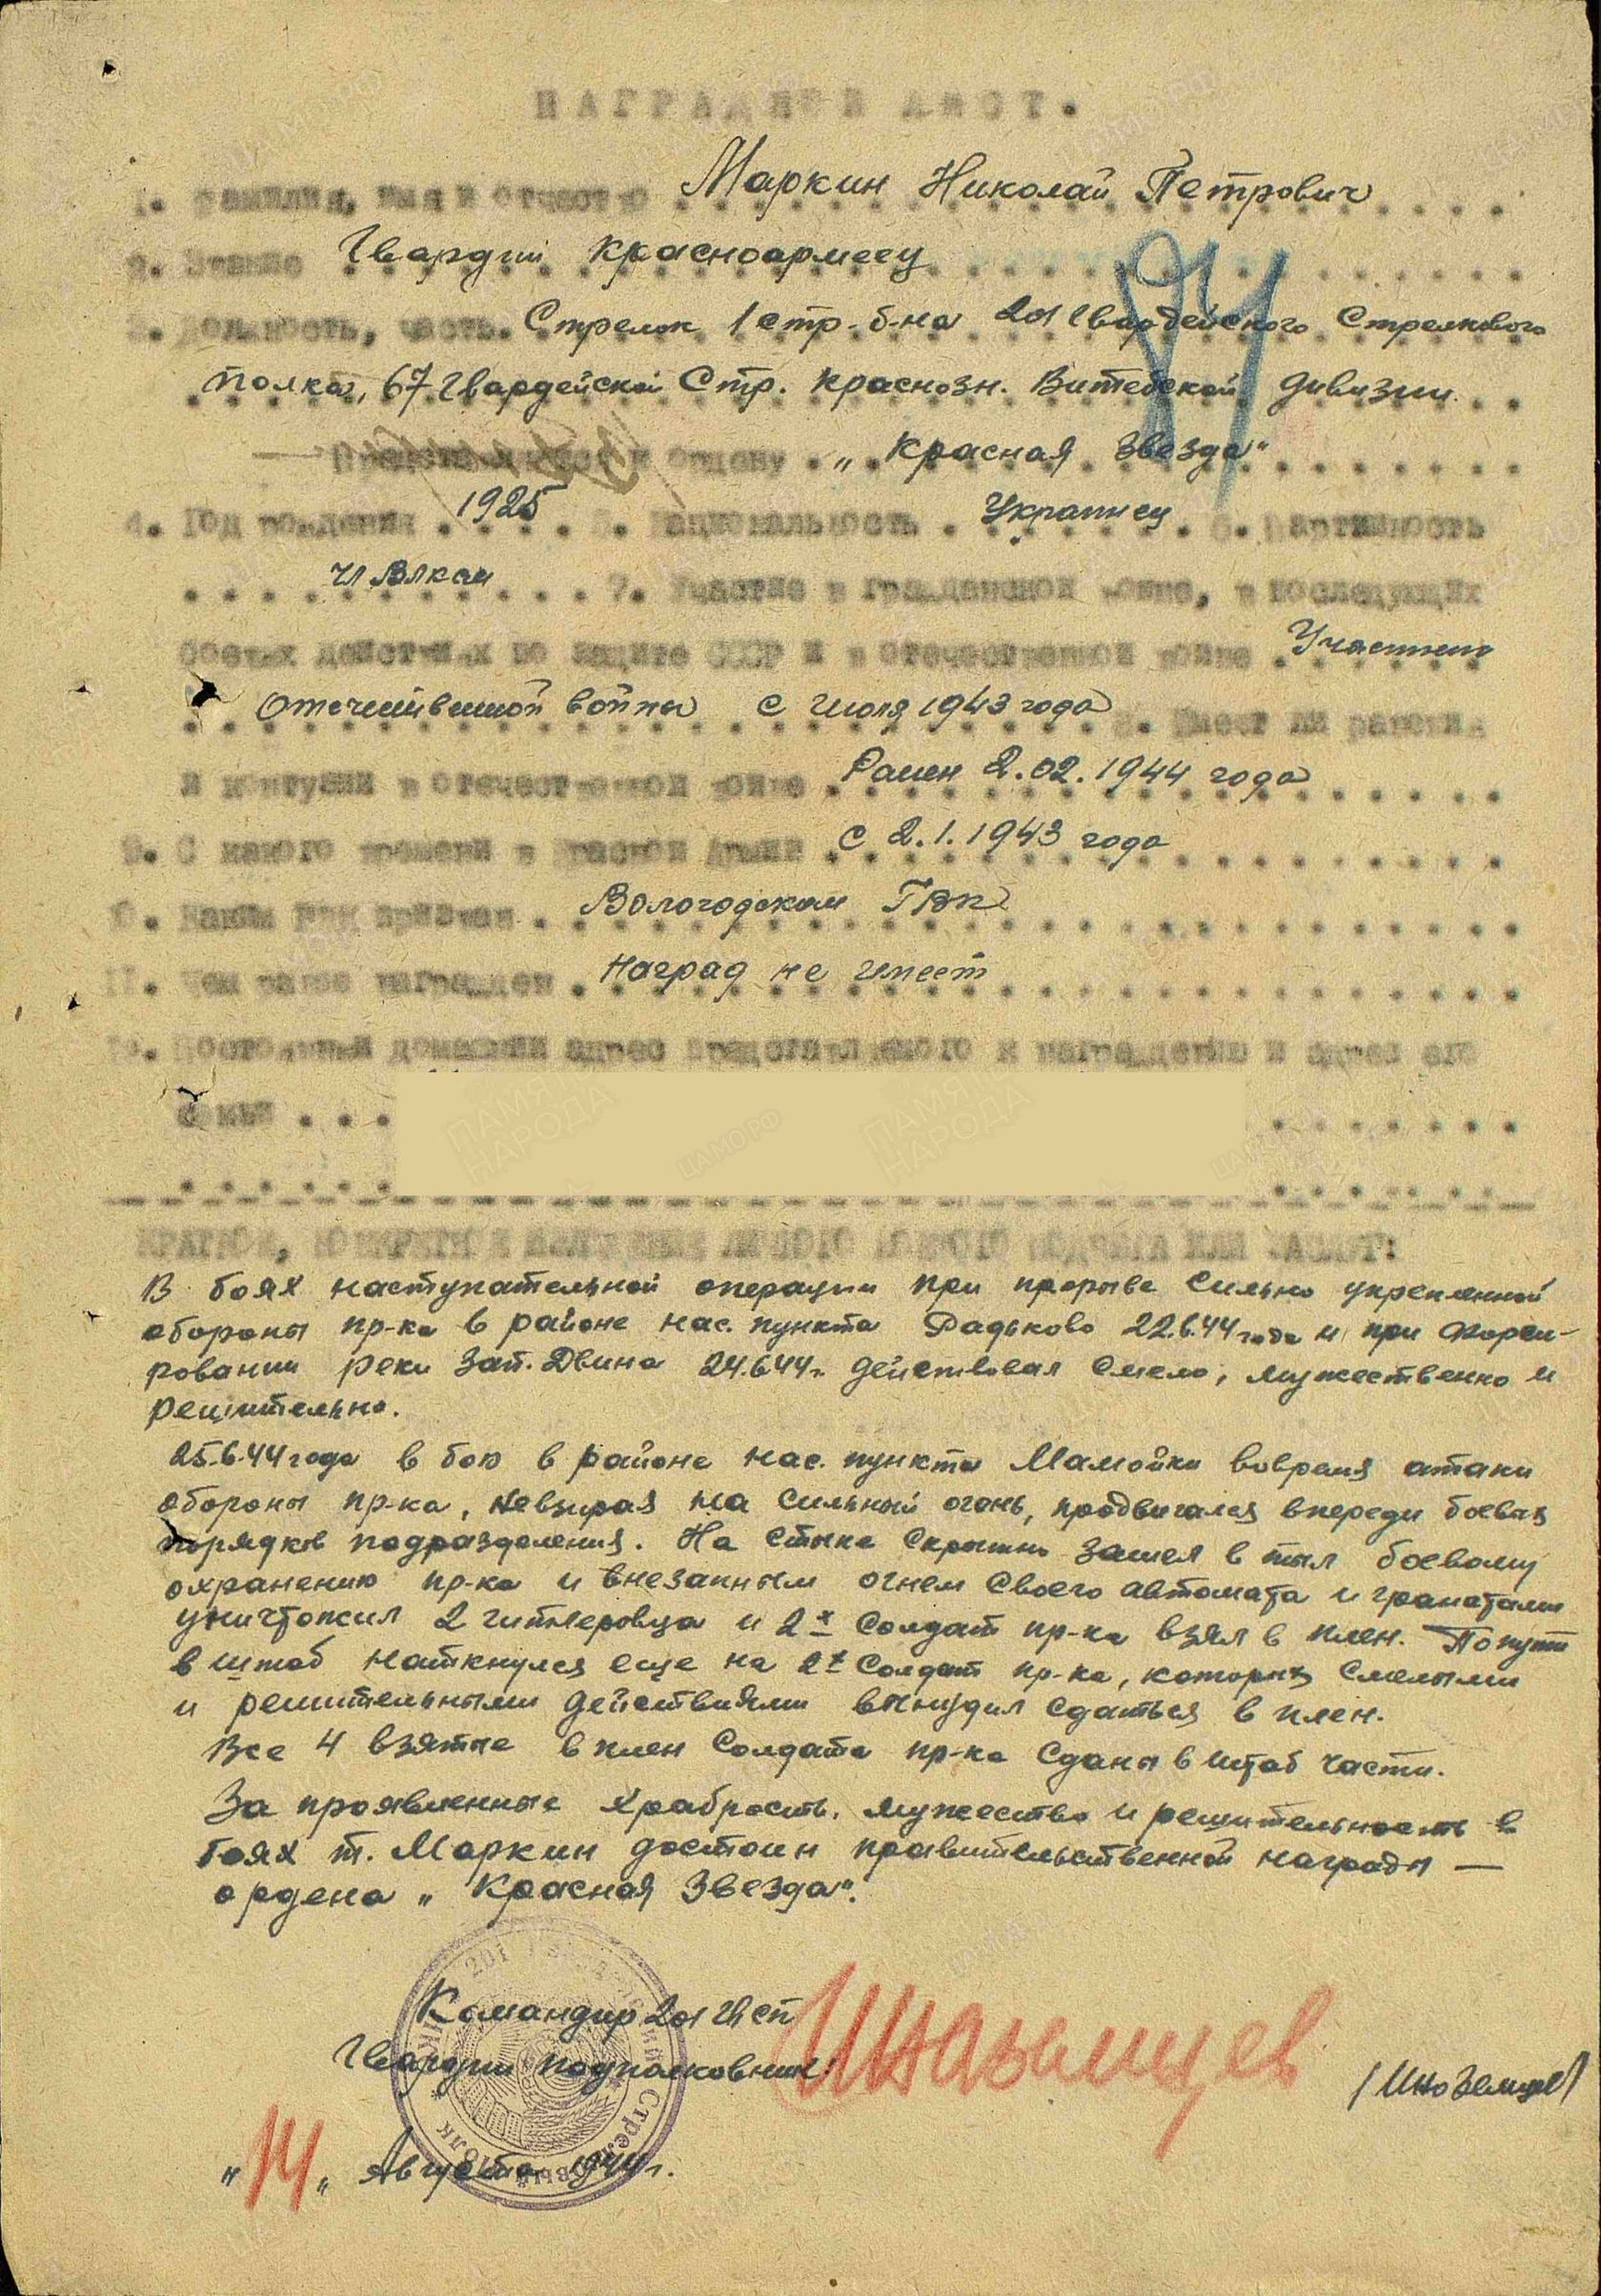 НАГРАДНОЙ ЛИСТ.
1. Фамилия, имя и отчество Маркин Николай Петрович
2. Звание Гвардии Красноармеец
3. Должность, часть. Стрелок 1 стр. б-на 201 Гвардейского Стрелкового
полка, 67 Гвардейской Стр. Краснозн. Витебской дивизии
Представляется к ордену „Красная Звезда"
4. Год рождения 1925 5. Национальность Украинец 6. Партийность
чл ВЛКСМ 7. Участие в гражданской войне, в последующих
боевых действиях по защите СССР и в отечественной войне Участник
Отечественной войны с июля 1943 года 8. Имеет ли ранения
и контузии в отечественной войне Ранен 2.02.1944 года
9. С какого времени в Красной Армии с 2.1.1943 года
10. Каким РВК призван Вологодским ГВК
11. Чем ранее награжден Наград не имеет
12. Постоянный домашний адрес представляемого к награждению и адрес его
семьи
КРАТКОЕ, КОНКРЕТНОЕ ИЗЛОЖЕНИЕ ЛИЧНОГО БОЕВОГО ПОДВИГА ИЛИ ЗАСЛУГ:
В боях наступательной операции при прорыве сильно укрепленной
обороны пр-ка в районе нас. пункта 22.6.44 года и при форси-
ровании реки Зап. Двина 24.6.44 г. действовал смело, мужественно и
решительно.
25.6.44 года в бою в районе нас. пункта Мамойки вовремя атаки
обороны пр-ка, невзирая на сильный огонь, продвигался впереди боевых
порядков подразделения. На стыке скрытно зашел в тыл боевому
охранению пр-ка и внезапным огнем своего автомата и гранатами
уничтожил 2 гитлеровца и 2х солдат пр-ка взял в плен. По пути
в штаб наткнулся еще на 2х солдат пр-ка, которых смелыми
и решительными действиями вынудил сдаться в плен.
Все 4 взятые в плен солдата пр-ка сданы в штаб части.
За проявленные храбрость, мужество и решительность в
боях т. Маркин достоин правительственной награды —
ордена „Красная Звезда".
Командир 201 Гв СП
Гвардии подполковник: Иноземцев /Иноземцев/
„14" Августа 1944 г.